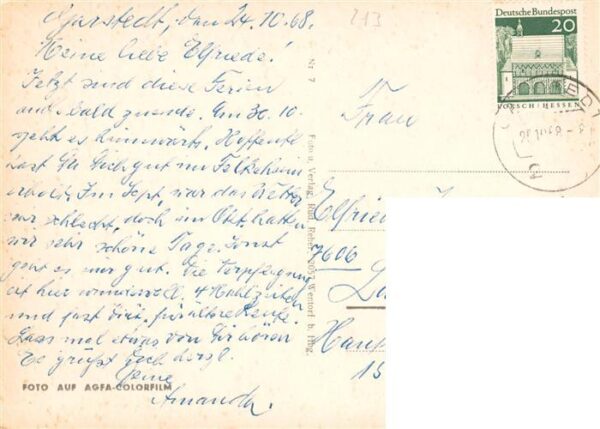 Garstedt, den 24.10.68.
Meine liebe Elfriede!
Jetzt sind diese Ferien
auch bald zuende. Am 30.10.
geht es heimwärts. Hoffentl.
hast Du Dich gut im
erholt. Im Sept. war das Wetter
sehr schlecht, doch im Okt. hatten
wir sehr schöne Tage. Sonst
geht es mir gut. Die Verpflegung
ist hier 4 Mahlzeiten
und fast
Lass mal etwas von Dir hören
Es grüßt Dich herzl.
Deine
Amanda.
FOTO AUF AGFA-COLORFILM
Nr 7
Foto u. Verlag, Rud. Reher, 2057 Wentorf b. Hbg.
213
Deutsche Bundespost
20
LORSCH · HESSEN
Frau
Elfrie
7606
Hau
15